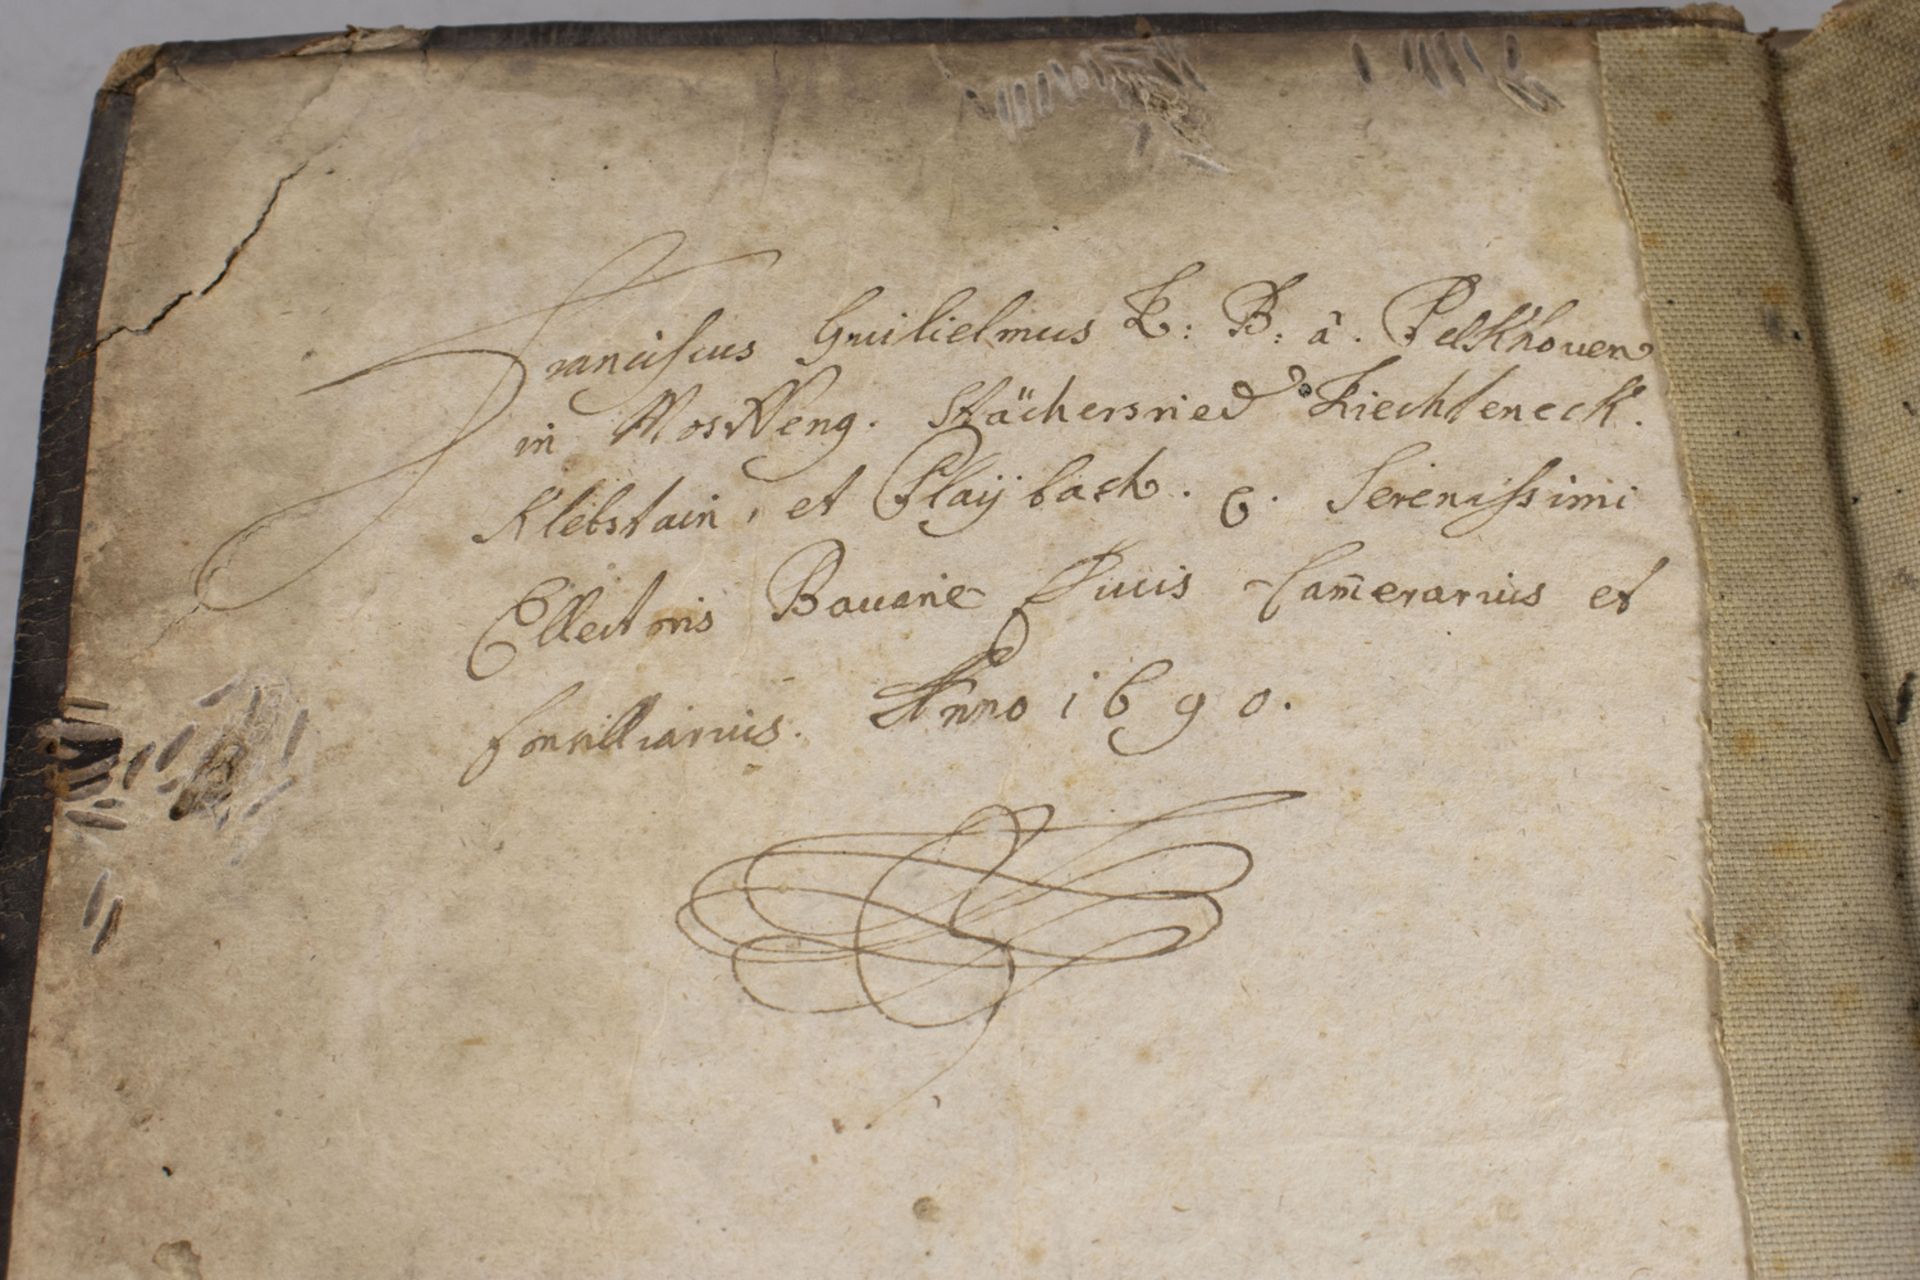 Franciscus Guilielmus L: B: â. Pelkhouen
in MosWeng. Stächersried Liechteneck.
Klebstain, et Playbach. Serenissimi
Ellectoris Bauarie Ducis Camerarius et
Consilliarius. Anno 1690.